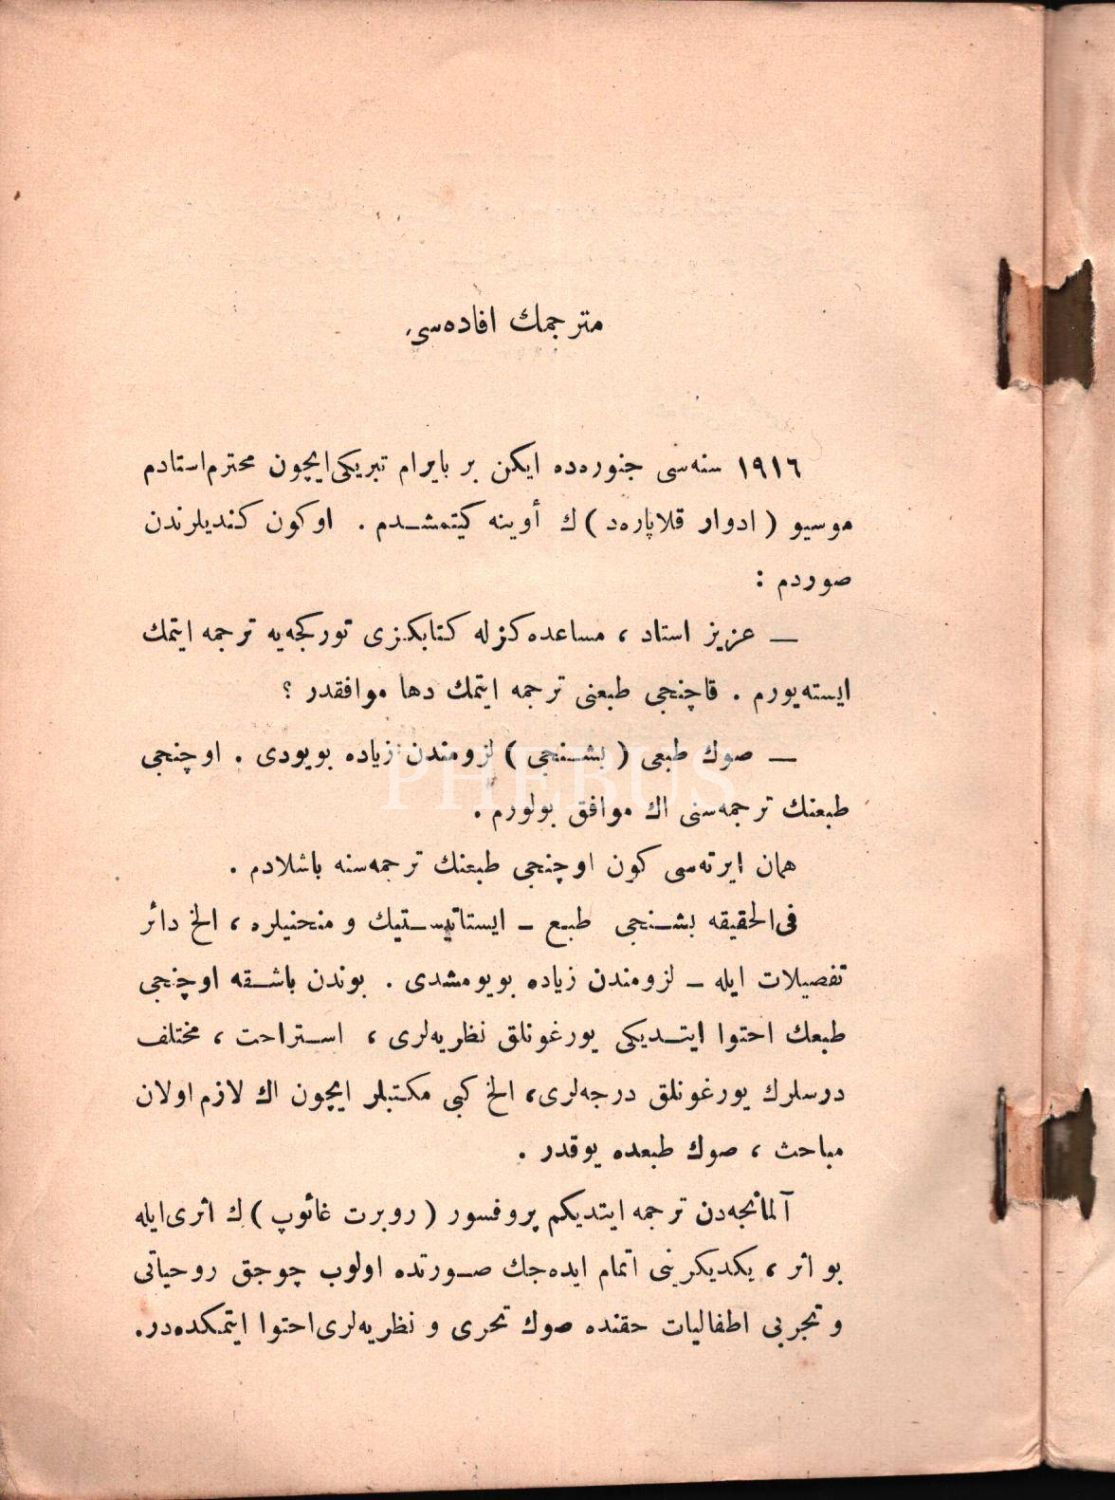 مترجمك افاده‌سی
١٩١٦ سنه‌سی جنوره‌ده ایكن بر بایرام تبریكی ایچون محترم استادم
موسیو ( ادوار قلاپاره‌د ) ك أوینه كیتمشدم . اوكون كندیلرندن
صوردم :
— عزیز استاد ، مساعده‌كزله كتابكزی توركجه‌یه ترجمه ایتمك
ایسته‌یورم . قاچنجی طبعنی ترجمه ایتمك دها موافقدر ؟
— صوك طبعی ( بشنجی ) لزومندن زیاده بویودی . اوچنجی
طبعنك ترجمه‌سنی اك موافق بولورم .
PHEBUS
همان ایرته‌سی كون اوچنجی طبعنك ترجمه‌سنه باشلادم .
فی‌الحقیقه بشنجی طبع – ایستاتیستیك و منحنیلره ، الخ دائر
تفصیلات ایله – لزومندن زیاده بویومشدی . بوندن باشقه اوچنجی
طبعك احتوا ایتدیكی یورغونلق نظریه‌لری ، استراحت ، مختلف
درسلرك یورغونلق درجه‌لری، الخ كبی مكتبلر ایچون اك لازم اولان
مباحث ، صوك طبعده یوقدر .
آلمانجه‌دن ترجمه ایتدیكم پروفسور ( روبرت غائوپ ) ك اثری ایله
بو اثر ، یكدیكرینی اتمام ایده‌جك صورتده اولوب چوجق روحیاتی
و تجربی اطفالیات حقنده صوك تحری و نظریه‌لری احتوا ایتمكده‌در.